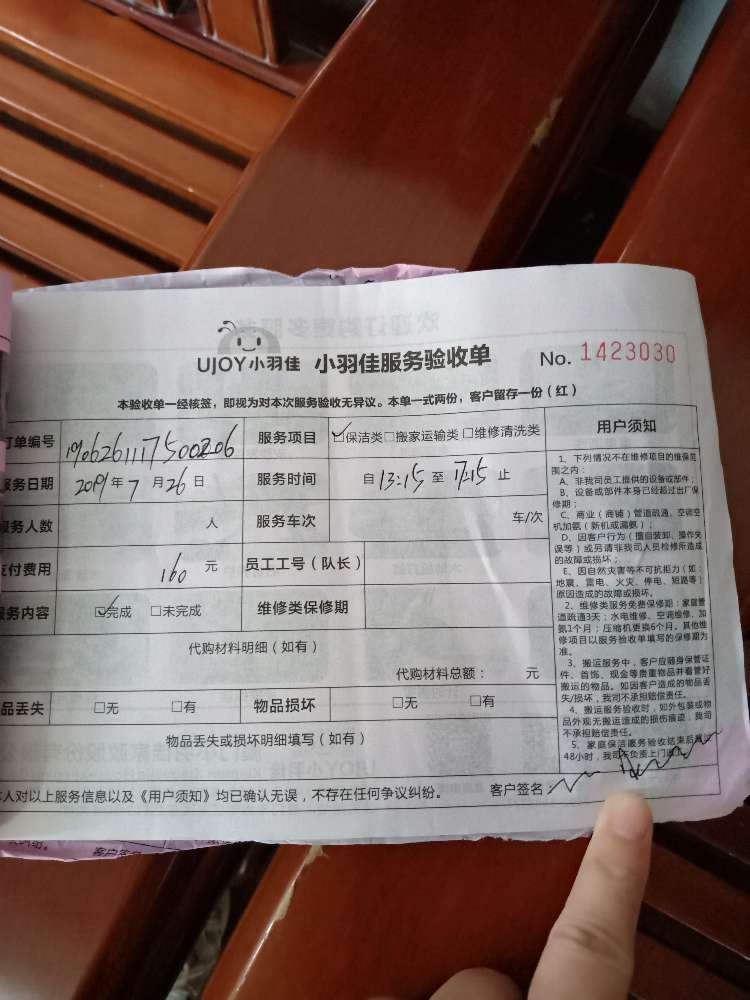 UJOY小羽佳 小羽佳服务验收单 No. 1423030
本验收单一经核签，即视为对本次服务验收无异议。本单一式两份，客户留存一份（红）
订单编号 1906261117500206 服务项目 ☑保洁类□搬家运输类□维修清洗类
服务日期 2019年 7 月 26 日 服务时间 自 13:15 至 17:15 止
服务人数 人 服务车次 车/次
支付费用 160 元 员工工号（队长）
服务内容 ☑完成 □未完成 维修类保修期
代购材料明细（如有）
代购材料总额： 元
品丢失 □无 □有 物品损坏 □无 □有
物品丢失或损坏明细填写（如有）
本人对以上服务信息以及《用户须知》均已确认无误，不存在任何争议纠纷。 客户签名
用户须知
1、下列情况不在维修项目的维保范
围之内：
A、非我司员工提供的设备或部件；
B、设备或部件本身已经超过出厂保
修期；
C、商业（商铺）管道疏通、空调空
机加氨（新机或漏氨）；
D、因客户行为（擅自装卸、操作失
误等）或另请非我司人员检修所造成
的故障或损坏；
E、因自然灾害等不可抗拒力（如：
地震、雷电、火灾、停电、短路等）
原因造成的故障或损坏。
2、维修类服务免费保修期：家庭管
道疏通3天；水电维修、空调维修、加
氨1个月；压缩机更换6个月。其他维
修项目以服务验收单填写的保修期为
准。
3、搬运服务中，客户应随身保管证
件、首饰、现金等贵重物品并看管好
搬运的物品。如因客户造成的物品丢
失/损坏，我司不承担赔偿责任。
4、搬运服务验收时，如外包装或物
品外观无搬运造成的损伤痕迹，我司
不承担赔偿责任。
5、家庭保洁服务验收结束后超过
48小时，我司不负责上门